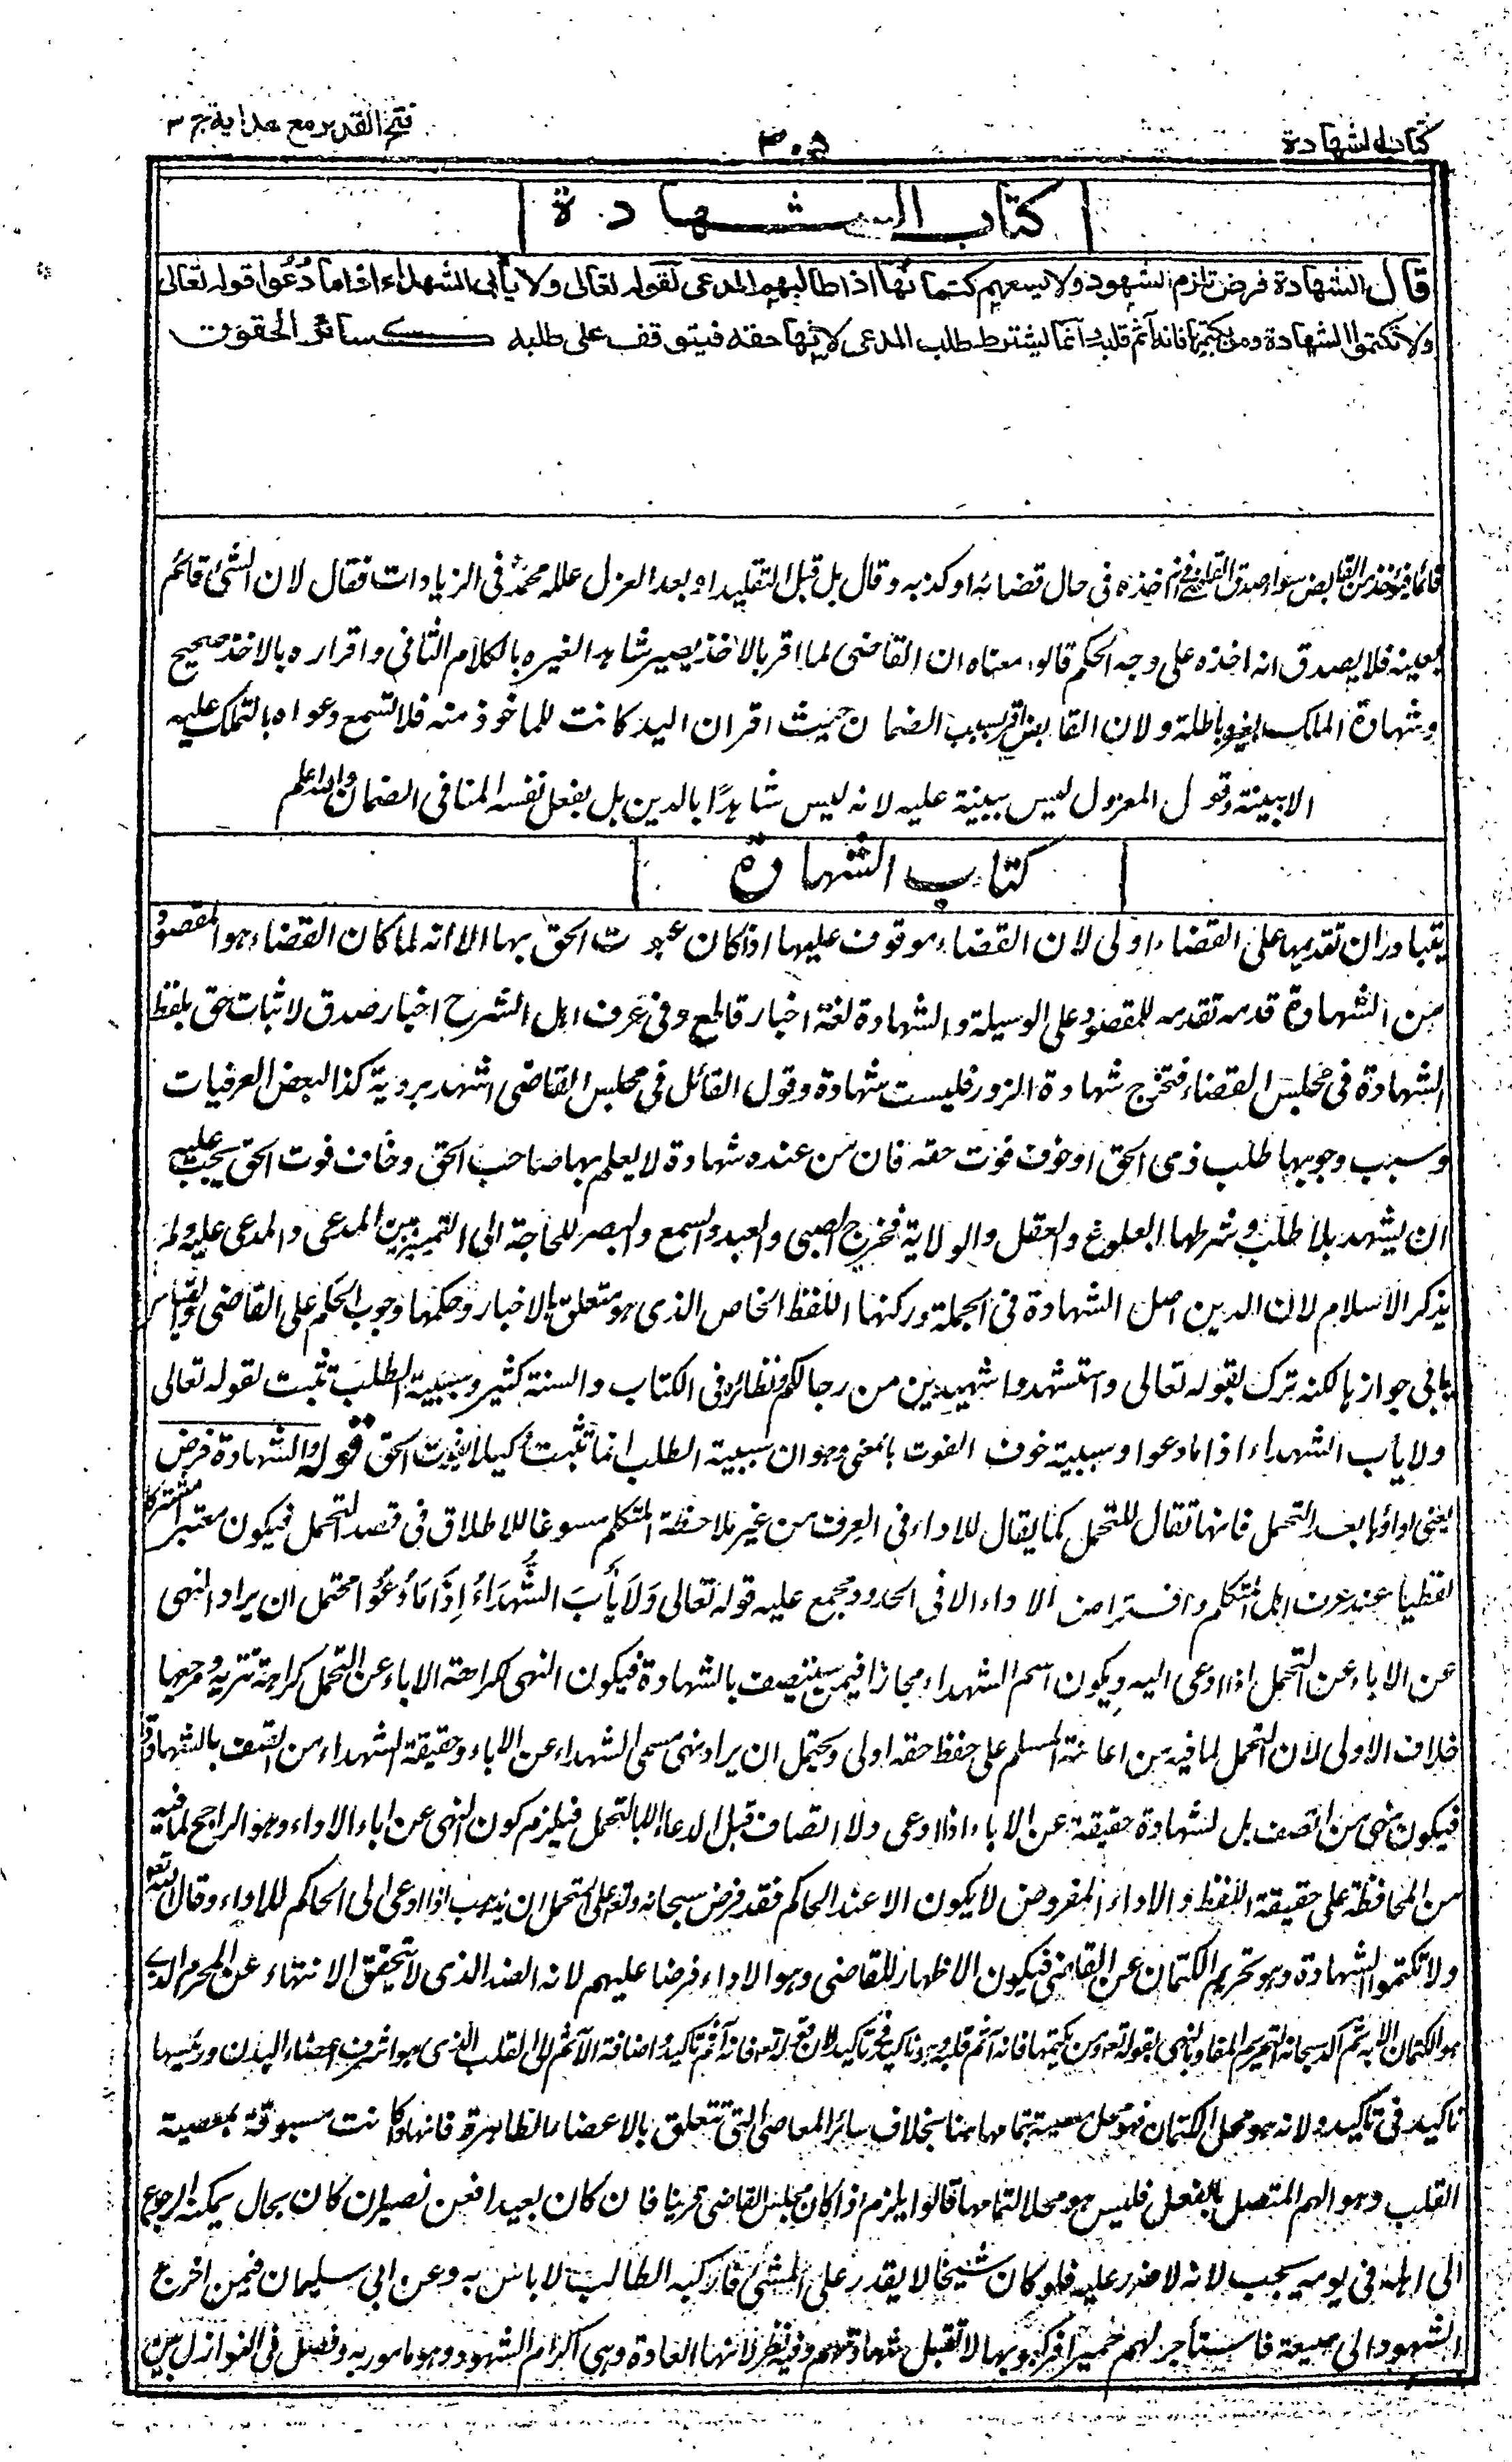 كتاب الشهادة
٣٠٥
فتح القدير مع هداية ج ٣
كتاب الشهادة
قال الشهادة فرض تلزم الشهود ولا يسعهم كتمانها اذا طالبهم المدعى لقوله تعالى ولا يأبى الشهداء اذا ما دُعُوا قوله تعالى
ولا تكتموا الشهادة ومن يكتمها فانه آثم قلبه انما يشترط طلب المدعى لانها حقه فيتوقف على طلبه كسائر الحقوق
قائما فيؤخذ من القابض سواء صدق القاضى فى اخذه فى حال قضائه او كذبه وقال بل قبل التقليد او بعد العزل علله محمد فى الزيادات فقال لان الشئ قائم
بعينه فلا يصدق انه اخذه على وجه الحكم قالوا معناه ان القاضى لما اقر بالاخذ يصير شاهدا لغيره بالكلام الثانى واقراره بالاخذ صحيح
وشهادة الملك لغيره باطلة ولان القابض اقر بسبب الضمان حيث اقر ان اليد كانت للماخوذ منه فلا تسمع دعواه بالتملك عليه
الا ببينة وقول المعزول ليس ببينة عليه لانه ليس شاهدًا بالدين بل بفعل نفسه المنافى الضمان والله اعلم
كتاب الشهادة
يتبادر ان تقديمها على القضاء اولى لان القضاء موقوف عليها اذا كان ثبوت الحق بها الا انه لما كان القضاء هو المقصود
من الشهادة قدمه تقديمه للمقصود على الوسيلة والشهادة لغة اخبار قاطع وفى عرف اهل الشرع اخبار صدق لاثبات حق بلفظ
الشهادة فى مجلس القضاء فتخرج شهادة الزور فليست شهادة وقول القائل فى مجلس القاضى اشهد برؤية كذا لبعض العرفيات
وسبب وجوبها طلب ذى الحق او خوف فوت حقه فان من عنده شهادة لا يعلم بها صاحب الحق وخاف فوت الحق يجب عليه
ان يشهد بلا طلب وشرطها البلوغ والعقل والولاية فخرج الصبى والعبد والسمع والبصر للحاجة الى التمييز بين المدعى والمدعى عليه ولم
يذكر الاسلام لان الدين اصل الشهادة فى الجملة وركنها اللفظ الخاص الذى هو متعلق بالاخبار وحكمها وجوب الحكم على القاضى والقياس
يابى جوازها لكنه ترك لقوله تعالى واستشهدوا شهيدين من رجالكم ونظائره فى الكتاب والسنة كثير وسببية الطلب تثبت لقوله تعالى
ولا يأب الشهداء اذا ما دعوا وسببية خوف الفوت بالمعنى وهو ان سببية الطلب انما تثبت كيلا يفوت الحق قوله الشهادة فرض
يعنى اداؤها بعد التحمل فانها تقال للتحمل كما يقال للاداء فى العرف من غير ملاحظة المتكلم مسوغا للاطلاق فى قصد التحمل فيكون معتبر مشتركا
لفظيا عند عرف اهل المتكلم وافتراض الاداء الا فى الحدود مجمع عليه قوله تعالى وَلَا يَأْبَ الشُّهَدَاءُ إِذَا مَا دُعُوا محتمل ان يراد النهى
عن الاباء عن التحمل اذا دعى اليه ويكون اسم الشهداء مجازا فيمن سيتصف بالشهادة فيكون النهى كراهة الاباء عن التحمل كراهة تنزيه ومرجعها
خلاف الاولى لان التحمل لما فيه من اعانة المسلم على حفظ حقه اولى ويحتمل ان يراد نهى مسمى الشهداء عن الاباء وحقيقة الشهداء من اتصف بالشهادة
فيكون نهى من اتصف بالشهادة حقيقة عن الاباء اذا دعى ولا اتصاف قبل الدعاء الا بالتحمل فيلزم كون النهى عن اباء الاداء وهو الراجح لما فيه
من المحافظة على حقيقة اللفظ والاداء المفروض لا يكون الا عند الحاكم فقد فرض سبحانه وتعالى على المتحمل ان يذهب اذا دعى الى الحاكم للاداء وقال الله تعالى
ولا تكتموا الشهادة وهو تحريم الكتمان عن القاضى فيكون الاظهار للقاضى وهو الاداء فرضا عليهم لانه الضد الذى لا يتحقق الانتهاء عن المحرم الذى
هو الكتمان الا به ثم اكد سبحانه التحريم المفاد بالنهى بقوله تعالى ومن يكتمها فانه آثم قلبه وهو تاكيد فى تاكيد لان قوله تعالى فانه آثم تاكيد واضافة الآثم الى القلب الذى هو اشرف اعضاء البدن ورئيسها
تاكيد فى تاكيد ولانه هو محل الكتمان فهو محل معصية بتمامها هنا بخلاف سائر المعاصى التى تتعلق بالاعضاء الظاهرة فانها وان كانت مسبوقة بمعصية
القلب وهو الهم المتصل بالفعل فليس هو محلا لتمامها قالوا يلزم اذا كان مجلس القاضى قريبا فان كان بعيدا فعن نصير ان كان بحال يمكنه الرجوع
الى اهله فى يومه يجب لانه لا ضرر عليه فلو كان شيخا لا يقدر على المشى فاركبه الطالب لا باس به وعن ابى سليمان فيمن اخرج
الشهود الى ضيعة فاستأجر لهم حميرا فركبوها لا تقبل شهادتهم وفيه نظر لانها العادة وهى اكرام الشهود وهو مامور به وفصل فى النوازل بين